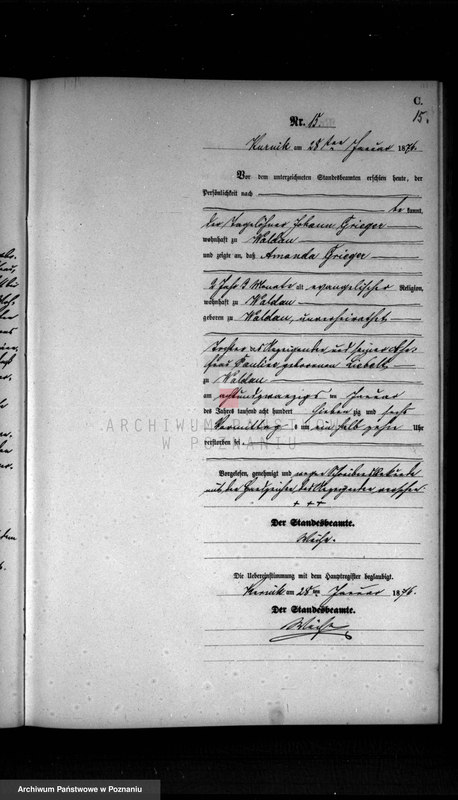 C.
15.
Nr. 15.
Kurnik am 28ten Januar 1876.
Vor dem unterzeichneten Standesbeamten erschien heute, der
Persönlichkeit nach
be kannt,
der Tagelöhner Johann Grieger
wohnhaft zu Waldau
und zeigte an, daß Amanda Grieger
2 Jahr 3 Monate alt evangelischer Religion,
wohnhaft zu Waldau
geboren zu Waldau, unverheirathet
Tochter des Anzeigenden und seiner Ehe
frau Pauline geborenen Liebelt
zu Waldau
am achtundzwanzigsten Januar
des Jahres tausend acht hundert sieben zig und sechs
Vormittag s um ein halb zehn Uhr
verstorben sei
Vorgelesen, genehmigt und wegen Schreibensunkunde
mit den Handzeichen des Anzeigenden versehen
+ + +
Der Standesbeamte.
Die Uebereinstimmung mit dem Hauptregister beglaubigt.
Kurnik am 28ten Januar 1876.
Der Standesbeamte.
ARCHIWUM PAŃSTWOWE
W POZNANIU
Archiwum Państwowe w Poznaniu